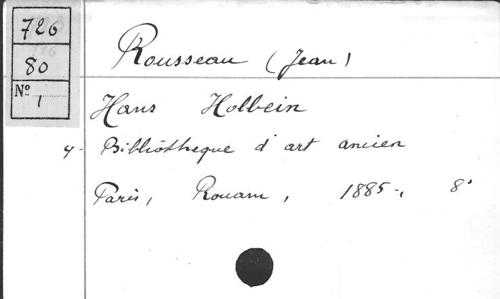 726
80
Nº 1
Rousseau (Jean)
Hans Holbein
4- Bibliothèque d'art ancien
Paris, Rouam, 1885-, 8°